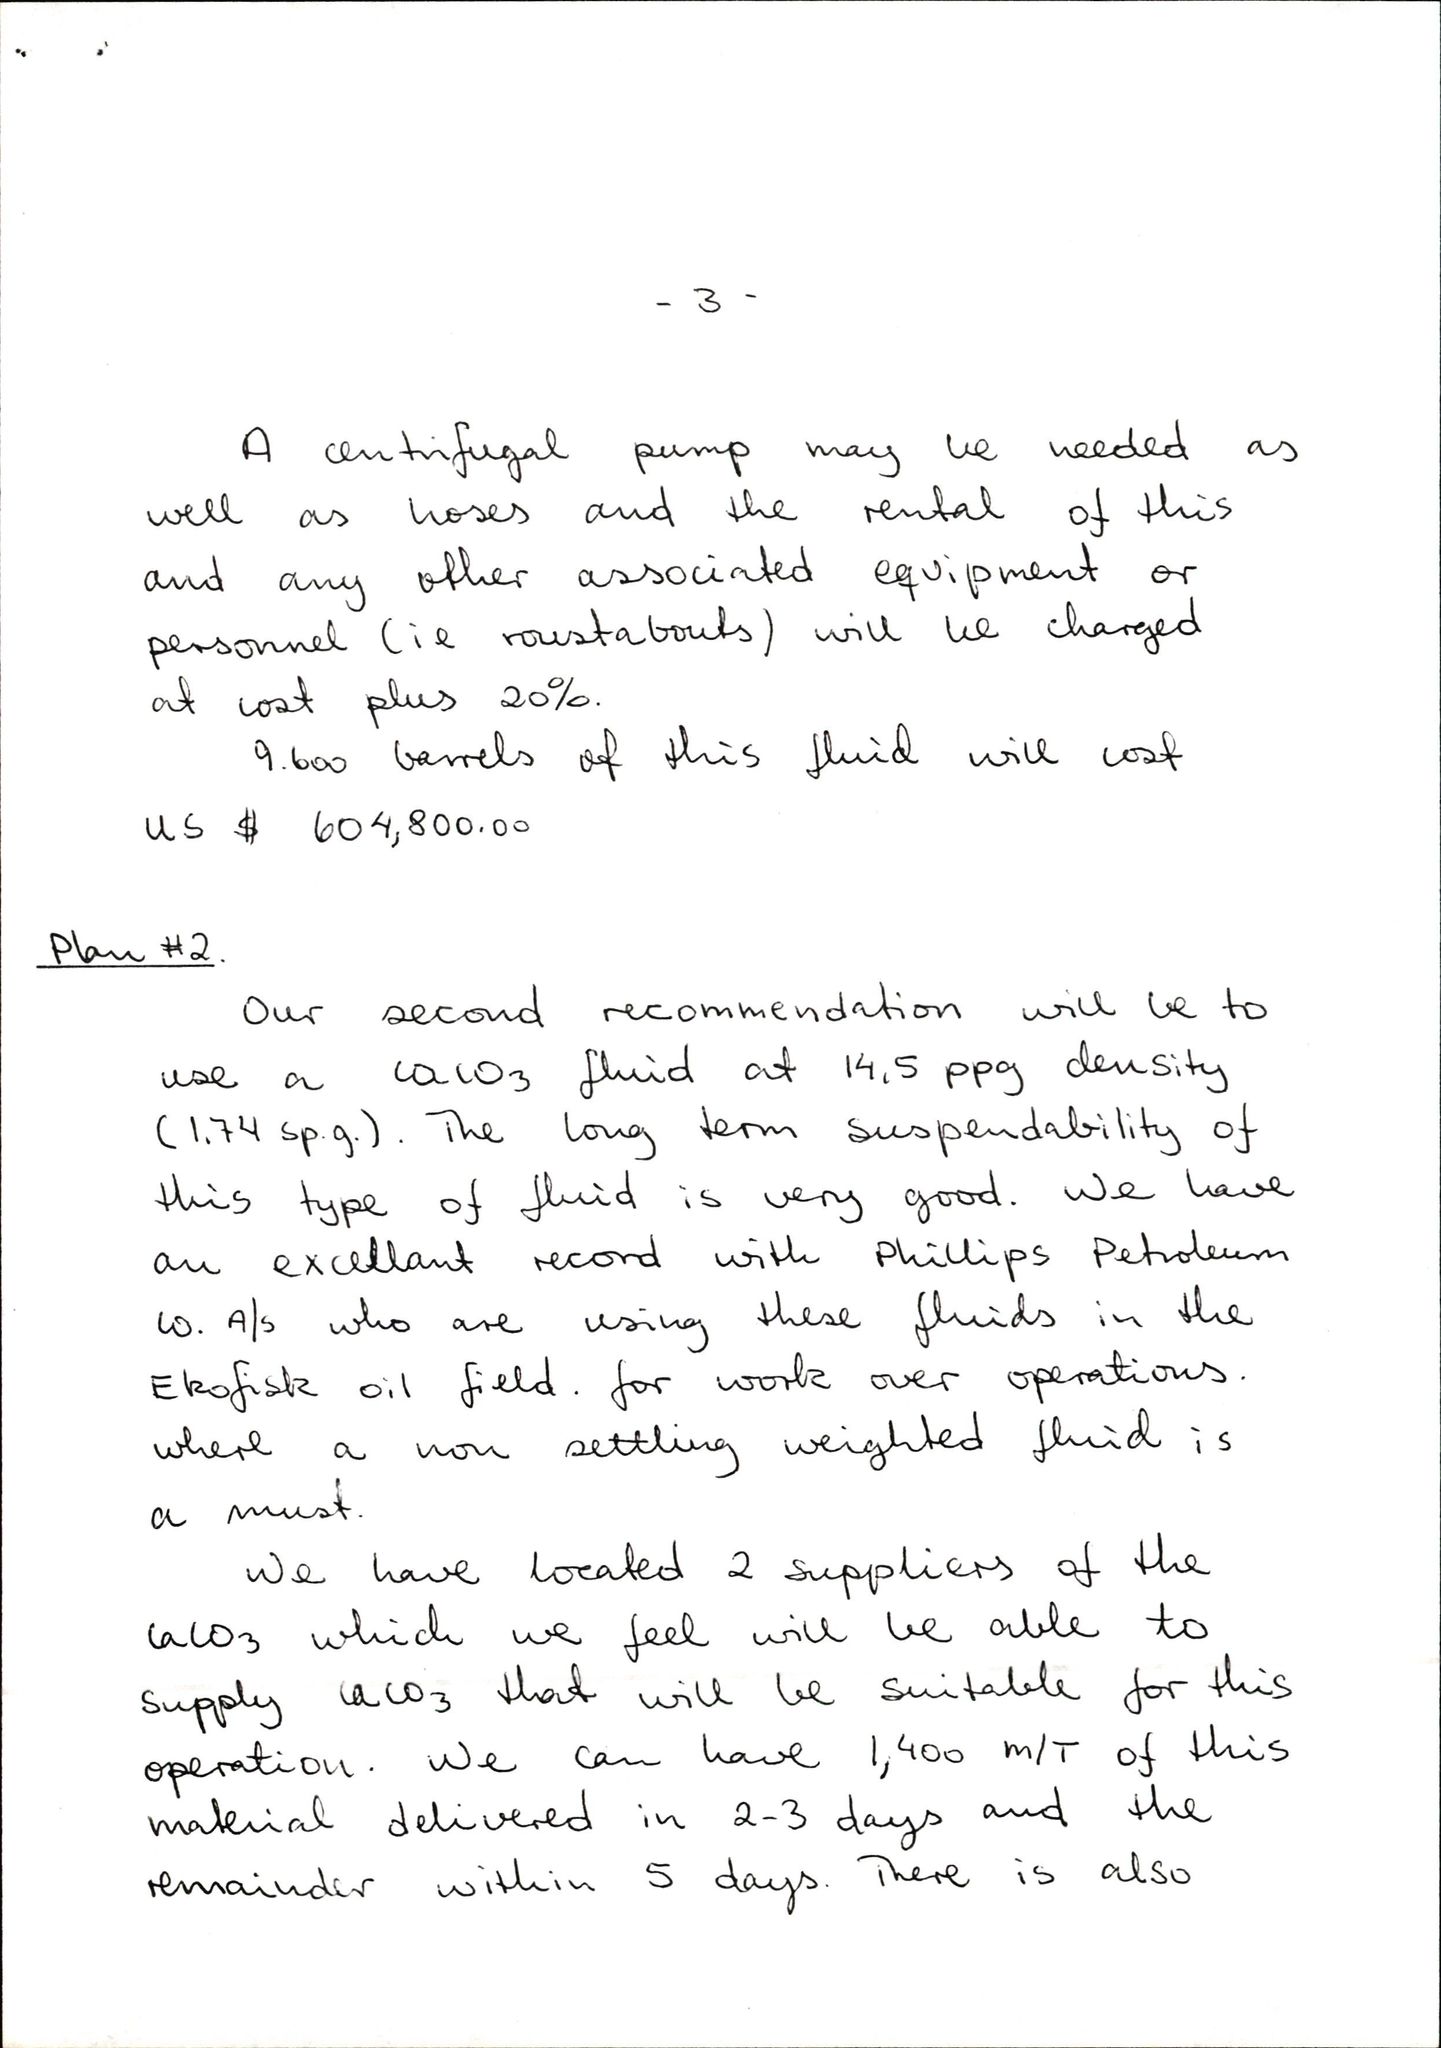 - 3 -
A centrifugal pump may be needed as
well as hoses and the rental of this
and any other associated equipment or
personnel (ie roustabouts) will be charged
at cost plus 20%.
9.600 barrels of this fluid will cost
US $ 604,800.00
Plan #2.
Our second recommendation will be to
use a CaCO3 fluid at 14,5 ppg density
(1.74 sp.g.). The long term suspendability of
this type of fluid is very good. We have
an excellant record with Phillips Petroleum
Co. A/s who are using these fluids in the
Ekofisk oil field. for work over operations.
where a non settling weighted fluid is
a must.
We have located 2 suppliers of the
CaCO3 which we feel will be able to
supply CaCO3 that will be suitable for this
operation. We can have 1,400 m/T of this
material delivered in 2-3 days and the
remainder within 5 days. There is also